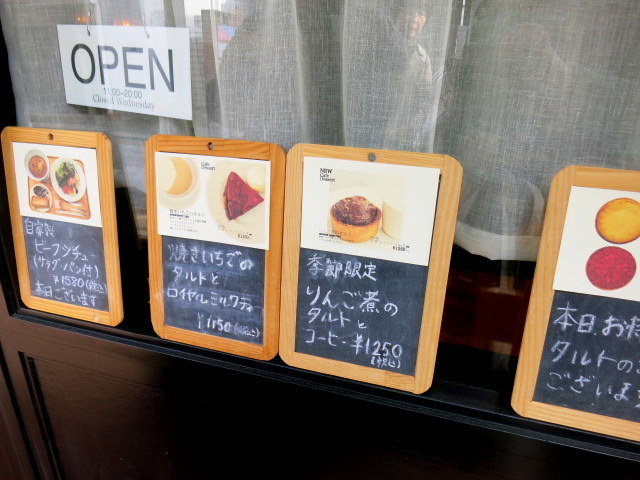 OPEN
11:00~20:00
Closed Wednesday
自家製
ビーフシチュ
(サラダ・パン付)
¥1580(税込)
本日ございます
Cafe
Dessert
焼きいちごの
タルトと
ロイヤルミルクティ
¥1150(税込)
New
Cafe
Dessert
季節限定
りんご煮の
タルトと
コーヒー ¥1250
(税込)
本日、お持
タルトの
ございます